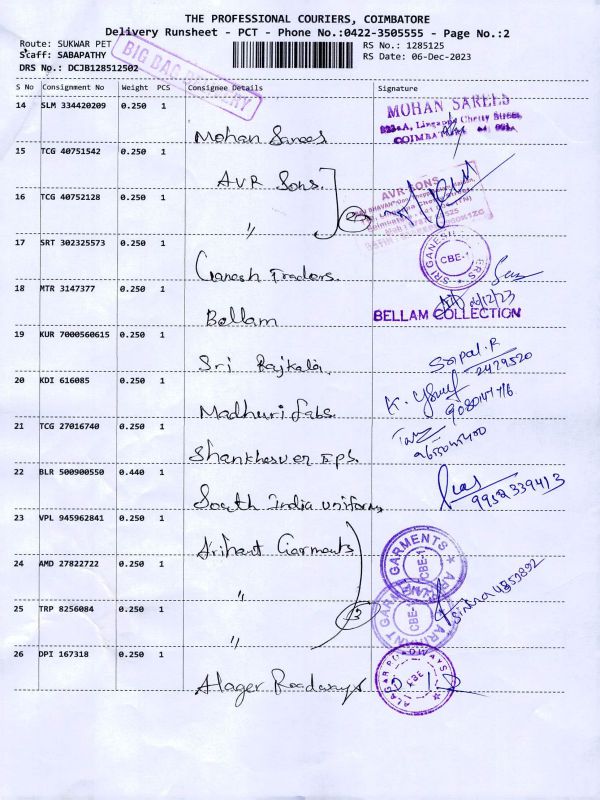 THE PROFESSIONAL COURIERS, COIMBATORE
Delivery Runsheet - PCT - Phone No.:0422-3505555 - Page No.:2
Route: SUKWAR PET
RS No.: 1285125
Scaff: SABAPATHY
RS Date: 06-Dec-2023
DRS No.: DCJB128512502
BIG BAG DELIVERY
S No Consignment No Weight PCS Consignee Details Signature
14 SLM 334420209 0.250 1
MOHAN SAREES
Mohan Sarees
COIMBATORE
15 TCG 40751542 0.250 1
AVR Sons.
AVR SONS
16 TCG 40752128 0.250 1
"
17 SRT 302325573 0.250 1
Ganesh Traders.
SRI GANESH
CBE-1
18 MTR 3147377 0.250 1
Bellam
BELLAM COLLECTION
19 KUR 7000560615 0.250 1
Sri Rajkala.
Sripal.R
2479520
20 KDI 616085 0.250 1
Madhuri fabs.
K.
21 TCG 27016740 0.250 1
Shankheswer Eps.
22 BLR 500900550 0.440 1
South India Uniforms
23 VPL 945962841 0.250 1
Arihant Garments
GARMENTS
CBE-1
24 AMD 27822722 0.250 1
"
25 TRP 8256084 0.250 1
3
"
26 DPI 167318 0.250 1
Alager Roadways
ALAGAR ROADWAYS
CBE